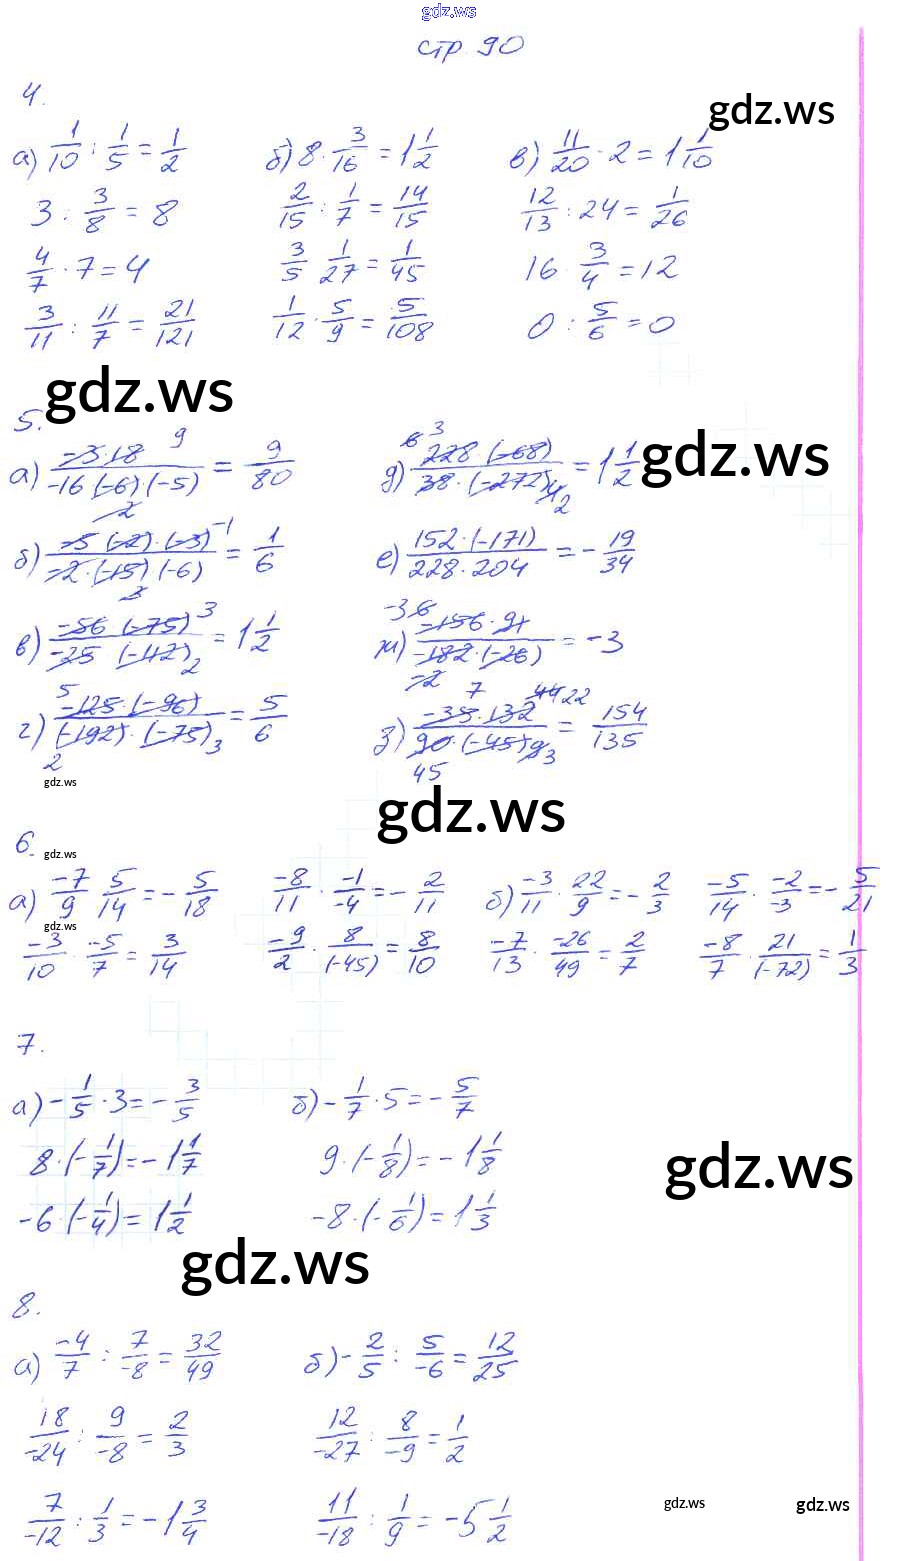 gdz.ws
стр. 90
gdz.ws
4.
а) 1/10 : 1/5 = 1/2   б) 8 · 3/16 = 1 1/2   в) 11/20 · 2 = 1 1/10
3 : 3/8 = 8   2/15 : 1/7 = 14/15   12/13 : 24 = 1/26
4/7 · 7 = 4   3/5 · 1/27 = 1/45   16 · 3/4 = 12
3/11 : 11/7 = 21/121   1/12 · 5/9 = 5/108   0 : 5/6 = 0
gdz.ws
5.
gdz.ws
а) -3·18 / -16·(-6)·(-5) = 9/80   д) 228·(-68) / 38·(-272) = 1 1/2
б) -5·(-2)·(-3) / -2·(-15)·(-6) = 1/6   е) 152·(-171) / 228·204 = - 19/34
в) -56·(-75) / -25·(-42) = 1 1/2   ж) -156·91 / -182·(-26) = -3
г) -125·(-96) / (-192)·(-75) = 5/6   з) -35·132 / 90·(-45) = 154/135
gdz.ws
gdz.ws
6.
gdz.ws
а) -7/9 · 5/14 = - 5/18   -8/11 · -1/-4 = - 2/11   б) -3/11 · 22/9 = - 2/3   -5/14 · -2/-3 = - 5/21
gdz.ws
-3/10 · -5/7 = 3/14   -9/2 · 8/(-45) = 8/10   -7/13 · -26/49 = 2/7   -8/7 · 21/(-72) = 1/3
7.
а) - 1/5 · 3 = - 3/5   б) - 1/7 · 5 = - 5/7
8·(- 1/7) = -1 1/7   9·(- 1/8) = -1 1/8
gdz.ws
-6·(- 1/4) = 1 1/2   -8·(- 1/6) = 1 1/3
gdz.ws
8.
а) -4/7 : 7/-8 = 32/49   б) - 2/5 : 5/-6 = 12/25
18/-24 : 9/-8 = 2/3   12/-27 : 8/-9 = 1/2
7/-12 : 1/3 = -1 3/4   11/-18 : 1/9 = -5 1/2
gdz.ws
gdz.ws